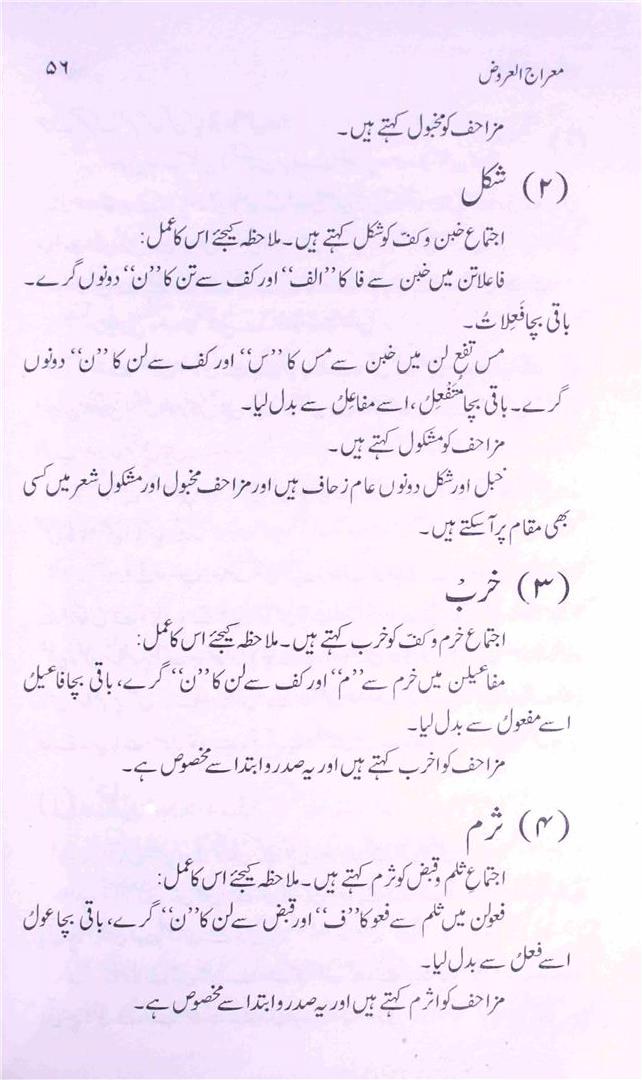 معراج العروض ۵۶
مزاحف کو مخبول کہتے ہیں۔
(۲) شکل
اجتماع خبن و کف کو شکل کہتے ہیں۔ ملاحظہ کیجئے اس کا عمل:
فاعلاتن میں خبن سے فا کا ”الف“ اور کف سے تن کا ”ن“ دونوں گرے۔
باقی بچا فَعِلاتُ۔
مس تفعِ لن میں خبن سے مس کا ”س“ اور کف سے لن کا ”ن“ دونوں
گرے۔ باقی بچا مُتَفْعِلُ، اسے مفاعِلُ سے بدل لیا۔
مزاحف کو مشکول کہتے ہیں۔
خبل اور شکل دونوں عام زحاف ہیں اور مزاحف مخبول اور مشکول شعر میں کسی
بھی مقام پر آسکتے ہیں۔
(۳) خربْ
اجتماع خرم و کف کو خرب کہتے ہیں۔ ملاحظہ کیجئے اس کا عمل:
مفاعیلن میں خرم سے ”م“ اور کف سے لن کا ”ن“ گرے، باقی بچا فاعیلُ
اسے مفعولُ سے بدل لیا۔
مزاحف کو اخرب کہتے ہیں اور یہ صدر و ابتدا سے مخصوص ہے۔
(۴) ثرم
اجتماعِ ثلم و قبض کو ثرم کہتے ہیں۔ ملاحظہ کیجئے اس کا عمل:
فعولن میں ثلم سے فعو کا ”ف“ اور قبض سے لن کا ”ن“ گرے، باقی بچا عولُ
اسے فعلُ سے بدل لیا۔
مزاحف کو اثرم کہتے ہیں اور یہ صدر و ابتدا سے مخصوص ہے۔